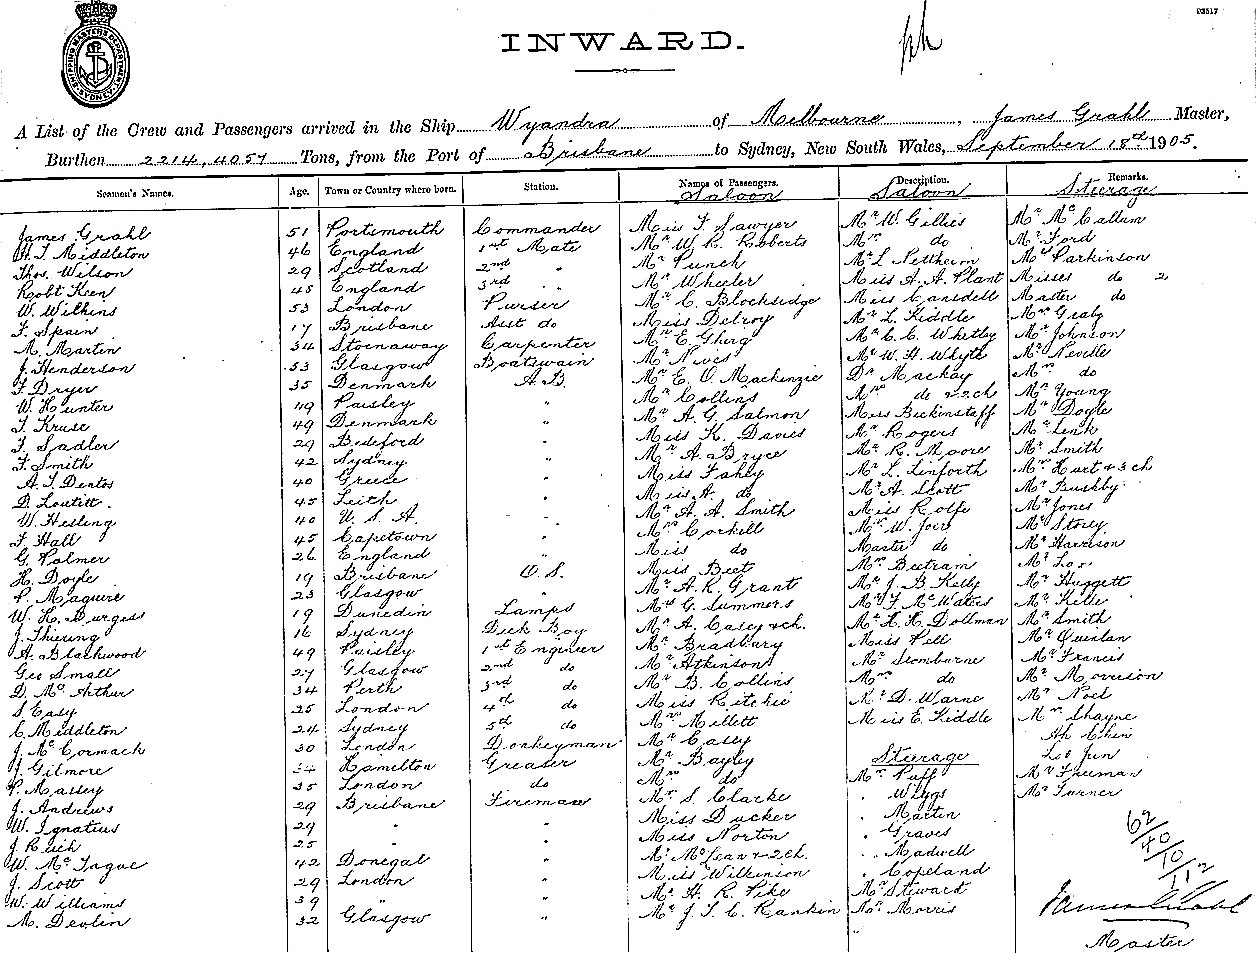 03517
SHIPPING MASTERS DEPARTMENT SYDNEY
INWARD.
A List of the Crew and Passengers arrived in the Ship Wyandra of Melbourne, James Grahl Master,
Burthen 2214, 4057 Tons, from the Port of Brisbane to Sydney, New South Wales, September 18th 1905.
Seamen's Names. Age. Town or Country where born. Station. Names of Passengers. Description. Remarks.
Saloon Saloon Steerage
James Grahl 51 Portsmouth Commander Miss F Sawyer Mr W. Gillies Mr McCallum
Middleton 46 England 1st Mate Mr W R. Roberts Mrs do Mr Ford
Thos. Wilson 29 Scotland 2nd " Mr Punch Mr L Nettheim Mrs Parkinson
Robt Keen 45 England 3rd " Mr Wheeler Miss A. A. Plant Misses do 2
W. Wilkins 53 London Purser Mr C. Blocksidge Miss Cansdell Master do
F. Spain 17 Brisbane Asst do Miss Delroy Mr L. Kiddle Mrs Grady
M. Martin 34 Stornaway Carpenter Mr E. Mr C. C. Whitley Mr Johnson
J. Henderson 53 Glasgow Boatswain Mr Neves Mr W. H. Whyte Mr Neville
F. Dryer 35 Denmark A.B. Mr E. O. Mackenzie Dr Mackay Mrs do
W. Hunter 49 Paisley " Mr Collins Mrs do & 2 ch Mr Young
F. Kruse 49 Denmark " Mr A. G. Salmon Miss Bickinstaff Mr Doyle
F. Sadler 29 Bedeford " Miss K. Davies Mr Rogers Mr Link
F. Smith 42 Sydney " Mr A. Bryce Mr R. Moore Mr Smith
A. J. Dentos 40 Greece " Miss Fahey Mr L. Linforth Mrs Hurt & 3 ch
D. Loutitt. 45 Leith " Miss A. do Mr A. Scott Mr Bushby
W. Hesling 40 U.S.A. " Mr A. A. Smith Miss Rolfe Mr Jones
F. Hall 45 Capetown " Mrs Corkell Mrs W. Joer Mr Storey
G. Palmer 26 England " Miss do Master do Mr Harrison
H. Doyle 19 Brisbane O.S. Miss Beet Mrs Butram Mr
P. Maguire 23 Glasgow " Mr A. K. Grant Mr J. B. Kelly Mr Huggett
W. H. Burgess 19 Dunedin Lamps Mrs G. Summers Mr F. McWates Mr Kelle
J. Thiering 16 Sydney Deck Boy Mr A. Casey & ch. Mr H. H. Dollman Mr Smith
A. Blackwood 49 Paisley 1st Engineer Mr Bradbury Miss Pell Mr Quinlan
Geo Small 27 Glasgow 2nd do Mr Atkinson Mr Stomburne Mr Francis
D. McArthur 34 Perth 3rd do Mr B. Collins Mrs do Mr Morrison
S. Easy 25 London 4th do Miss Ritchie Mr D. Warne Mr Noel
C. Middleton 24 Sydney 5th do Mrs Millett Miss E. Kiddle Mrs Shayne
J. McCormach 30 London Donkeyman Mr Casey Ah Chin
J. Gilmore 34 Hamelton Greaser Mr Bayley Steerage Jun
P. Massey 35 London do Mrs do Mr Puff Mr Freeman
J. Andrews 29 Brisbane Fireman Mr S. Clarke " Wiggs Mr Turner
W. Ignatius 29 " " Miss Ducker " Martin
J. Reich 25 " " Miss Norton " Graves
W. McTague 42 Donegal " Mr McLean & 2 ch. " Madwell
J. Scott 29 London " Miss Wilkinson " Copeland
W. Williams 39 " " Mr H. R. Pike Mr Steward
M. Devlin 32 Glasgow " Mr J. T. C. Rankin Mr Morris
62
40
10
112
James Grahl
Master